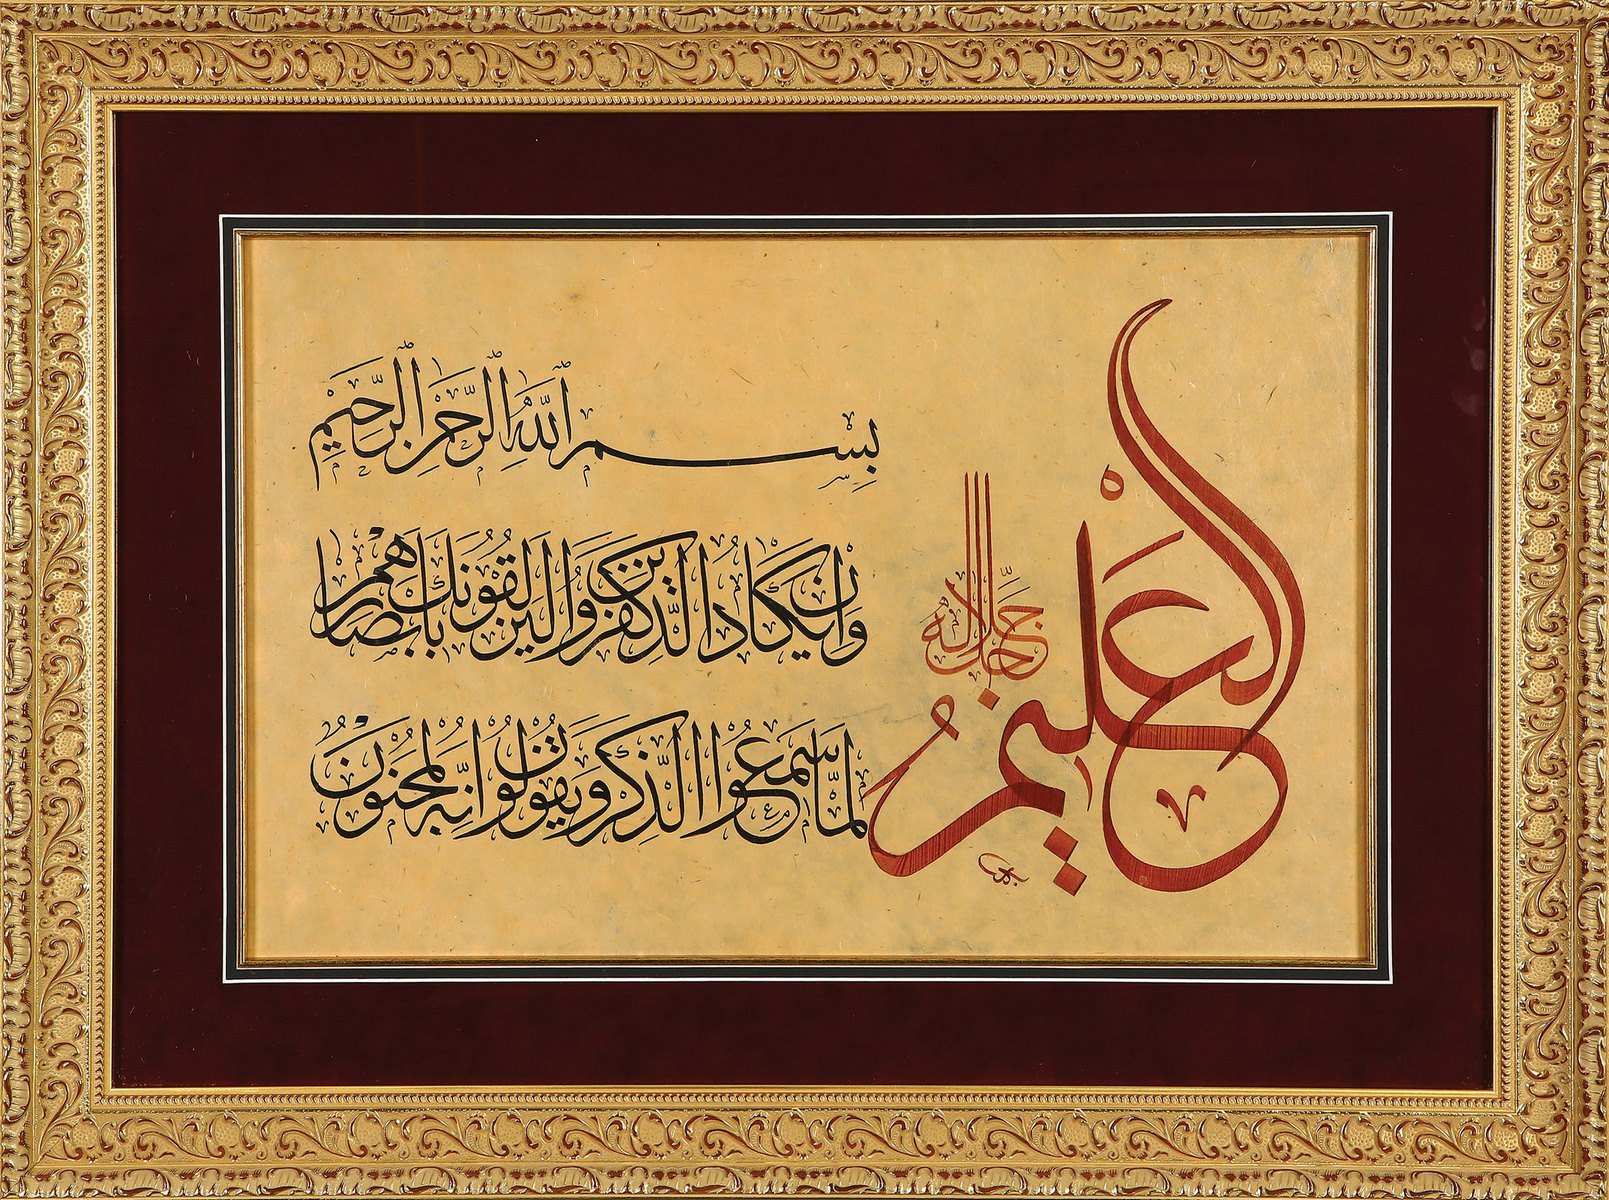 العليم
جل جلاله
بِسْمِ اللهِ الرَّحْمٰنِ الرَّحِيمِ
وَإِنْ يَكَادُ الَّذِينَ كَفَرُوا لَيُزْلِقُونَكَ بِأَبْصَارِهِمْ
لَمَّا سَمِعُوا الذِّكْرَ وَيَقُولُونَ إِنَّهُ لَمَجْنُونٌ